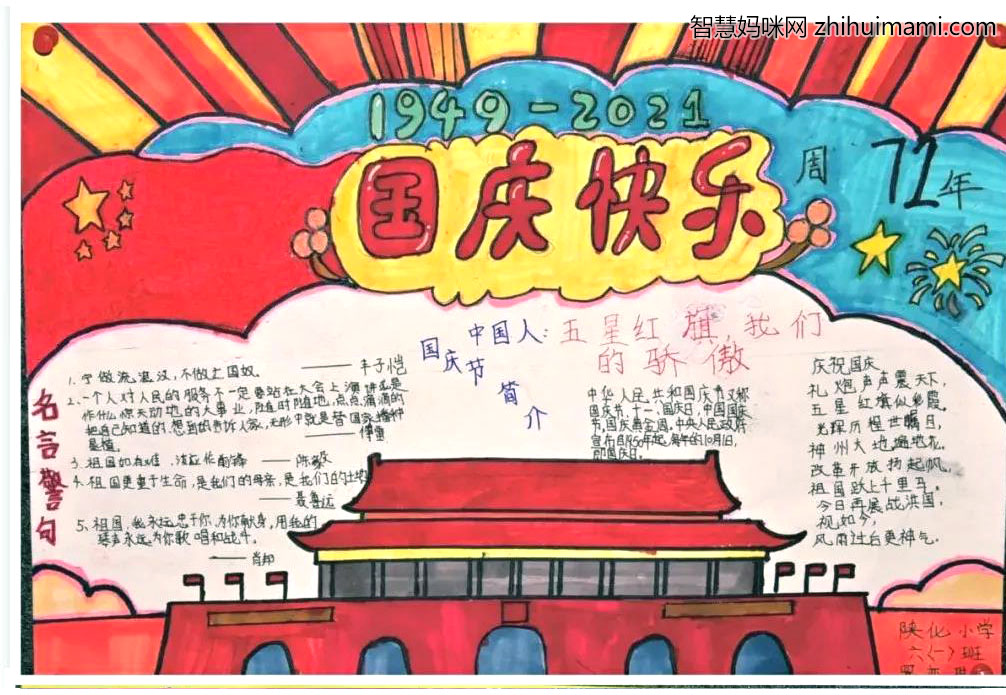 智慧妈咪网 zhihuimami.com
1949-2021
国庆快乐
周 72 年
名言警句
1. 宁做流浪汉,不做亡国奴。 —— 丰子恺
2. 一个人对人民的服务不一定要站在大会上演讲或是
作什么惊天动地的大事业,随时随地,点点滴滴的
把自己知道的、想到的告诉人家,无形中就是替国家播种
垦植。 —— 傅雷
3. 祖国如有难, 作前锋 —— 陈毅
4. 祖国更重于生命,是我们的母亲,是我们的土壤
—— 聂鲁达
5、祖国,我永远忠于你,为你献身,用我的
琴声永远为你歌唱和战斗。
—— 肖邦
国庆节简介
中国人:五星红旗,我们
的骄傲
中华人民共和国国庆节又称
国庆节,十一、国庆日,中国国庆
节,国庆黄金周。中央人民政府
宣布自1950年起,每年的10月1日,
即国庆日。
庆祝国庆
礼炮声声震天下,
五星红旗似彩霞。
光辉历程世瞩目,
神州大地遍地花。
改革开放扬起帆,
祖国跃上千里马。
今日再展战洪图,
视如今,
风雨过后更神气。
陕化小学
六(一)班